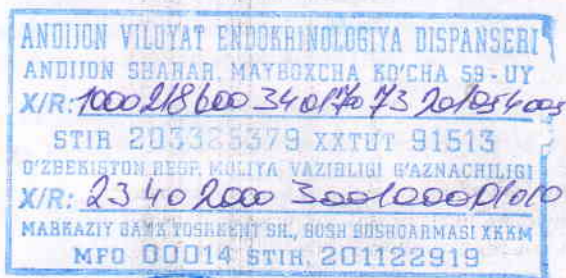 ANDIJON VILOYAT ENDOKRINOLOGIYA DISPANSERI
ANDIJON SHAHAR, MAYBOXCHA KO'CHA 59-UY
X/R: 100021860034017073201054003
STIR 203325379 XXTUT 91513
O'ZBEKISTON RESP. MOLIYA VAZIRLIGI G'AZNACHILIGI
X/R: 23402000300100001010
MARKAZIY BANK TOSHKENT SH., BOSH BOSHQARMASI XKKM
MFO 00014 STIR, 201122919